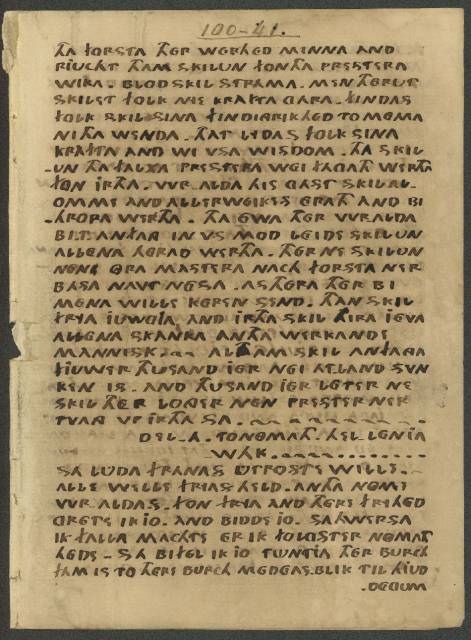 100-41.
THA FORSTA THER WERTHED MINNA AND
RIUCHT THAM SKILUN FON THA PRESTERA
WIKA. BLOD SKIL STRAMA. MEN THERUT
SKILET FOLK NIE KRAFTA GARA. FINDAS
FOLK SKIL SINA FINDINGRIKHED TO MENA
NITHA WENDA. THAT LYDAS FOLK SINA
KRAFTA AND WI VSA WISDOM. THA SKIL-
UN THA FALXA PRESTERA WEI FAGATH WERTHA
FON IRTHA. WR.ALDA HIS GAST SKIL AL-
OMME AND ALLERWEIKES ERATH AND BI
-HROPA WERTHA. THA EWA THER WR.ALDA
BIT. ANFANG IN VS MOD LEIDE SKILUN
ALLENA HERAD WERTHA. THER NE SKILUN
NENE ORA MASTERA NACH FORSTA NER
BASA NAVT NESA. AS THERA THER BI
MENA WILLE KEREN SEND. THAN SKIL
FRYA IUWGIA AND IRTHA SKIL HIRA IEVA
ALLENA SKANKA ANTHA WERKANDE
MANNISK. ALTHAM SKIL ANFAGA
FIUWER THUSAND IER NEI ATLAND SVN
KEN IS. AND THUSAND IER LETER NE
SKIL THER LONGER NEN PRESTER NER
TVANG VP IRTHA SA.
DEL.A. TONOMATH. HELLENIA
WAK.
SA LUDA FRANAS UTROSTE WILLE.
ALLE WELLE FRIAS HELD. ANTHA NOME
WR.ALDAS. FON FRYA AND THERE FRYHED
GRETE IK IO. AND BIDDE IO. SAHWERSA
IK FALLA MACHTE ER IK FOLGSTER NOMATH
HEDE. SA BIFEL IK IO TUNTIA THER BURCH
FAM IS TO THERE BURCH MEDEAS.BLIK TIL HIUD
.DEGUM